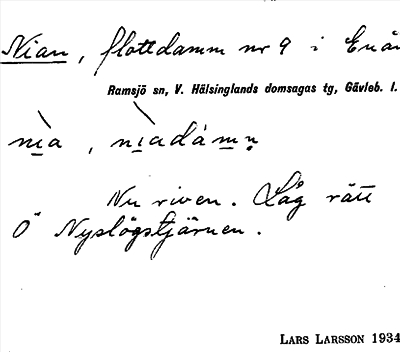 Nian, flottdamm nr 9 i Enån
Ramsjö sn, V. Hälsinglands domsagas tg, Gävleb. l.
nìa, nìadàmn̥
Nu riven. Låg rätt
Ö Nyslögstjärnen.
LARS LARSSON 1934